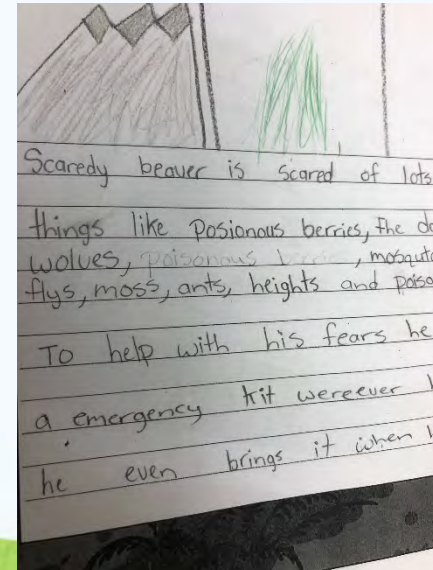 Scaredy beaver is scared of lots
things like Posionous berries, The
wolves, poisonous berries, mosquto
flys, moss, ants, heights and
To help with his fears he
a emergency kit wereever
he even brings it when